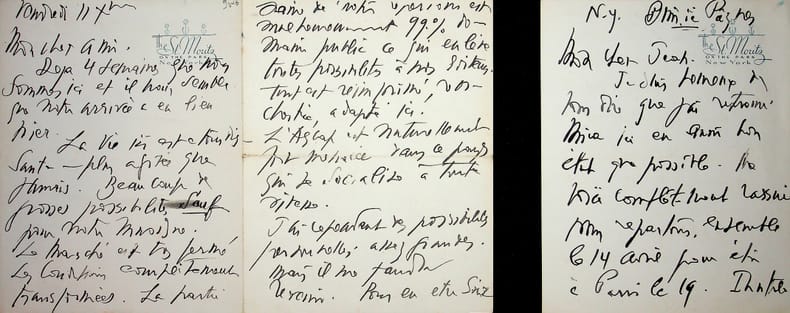 Vendredi 11
The St. Moritz
ON THE PARK
New York
Mon cher ami.
Deja 4 semaines que nous
sommes ici et il nous semble
que notre arrivée a eu lieu
hier.
La vie ici est
plus agitée que
jamais. Beaucoup de
grosses possibilités sauf
pour notre musique.
Le marché est très fermé
Les conditions complètement
transformées. La partie
de notre
99% do-
maine public ce qui enlève
toutes possibilités à nos
tout est réimprimé,
adapté ici.
L'Ascap est naturellement
dans ce pays
qui se socialise à toute
vitesse.
J'ai cependant des possibilités
personnelles assez grandes.
mais il me faudra
revenir. Pour en être
N.Y.
The St. Moritz
ON THE PARK
New York
Mon cher Jean.
Je suis heureux de
vous dire que j'ai retrouvé
ici en aussi bon
état que possible. Me
voilà complètement rassuré
nous repartons ensemble
le 14 avril pour être
à Paris le 19.